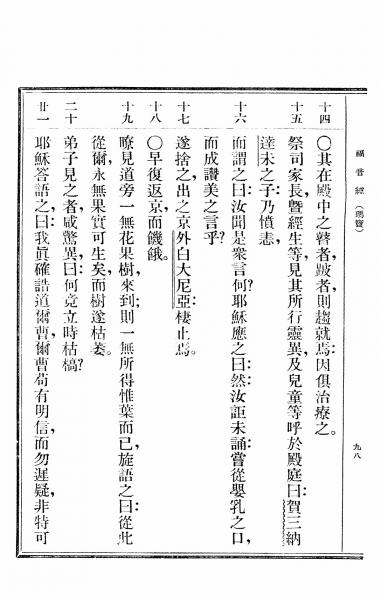 福音經 (瑪竇)
九八
十四 ○其在殿中之瞽者,跛者,則趨就焉:因俱治療之。
十五 祭司家長,暨經生等,見其所行靈異,及兒童等呼於殿庭曰:賀三納
達未之子:乃憤恚,
十六 而謂之曰:汝聞是衆言何?耶穌應之曰:然,汝詎未誦:嘗從嬰乳之口,
而成讚美之言乎?
十七 遂捨之,出之京外白大尼亞棲止焉。
十八 ○早復返京,而饑餓。
十九 瞭見道旁一無花果樹,來到;則一無所得惟葉而已,旋語之曰:從此
從爾,永無果實可生矣,而樹遂枯萎。
二十 弟子見之者,咸驚異曰:何竟立時枯槁?
廿一 耶穌答語之曰:我眞確誥道爾曹,爾曹苟有明信,而勿遲疑,非特可